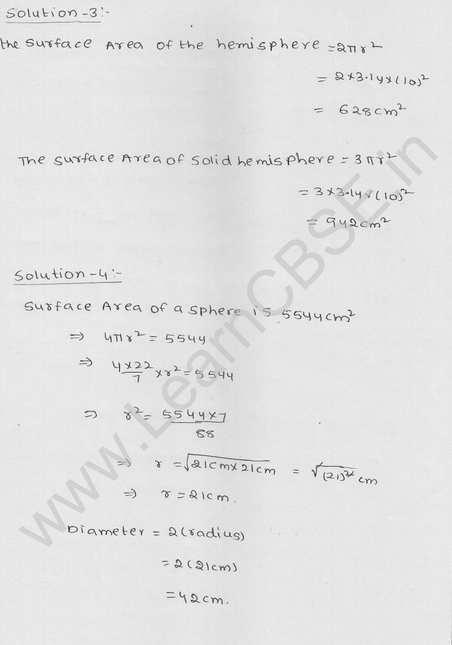 Solution-3:-
the Surface Area of the hemisphere = 2πr²
= 2×3.14×(10)²
= 628cm²
The Surface Area of Solid hemisphere = 3πr²
= 3×3.14×(10)²
= 942cm²
Solution-4:-
Surface Area of a sphere is 5544cm²
⇒ 4πr² = 5544
⇒ 4×22/7 × r² = 5544
⇒ r² = 5544×7/88
⇒ r = √21cm×21cm = √(21)² cm
⇒ r = 21cm.
Diameter = 2(radius)
= 2(21cm)
= 42cm.
www.LearnCBSE.in